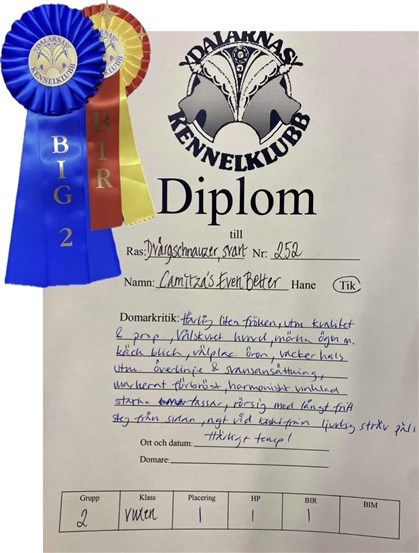 DALARNAS
KENNELKLUBB
BIG 2
DALARNAS
BIR
DALARNAS
KENNELKLUBB
Diplom
till
Ras: Dvärgschnauzer, svart Nr: 252
Namn: Camitza's Even Better Hane Tik
Domarkritik: Härlig liten fröken, utm kvalitet
& prop, välskuret huvud, mörka ögon m.
käck blick, välplac öron, vacker hals
utm överlinje & svansansättning,
markerat förbröst, harmoniskt vinklad
starka tassar, rörsig med långt fritt
steg från sidan, ngt vid ljuvlig sträv päls
Härligt temp!
Ort och datum:
Domare:
Grupp Klass Placering HP BIR BIM
2 vuxen 1 1 1